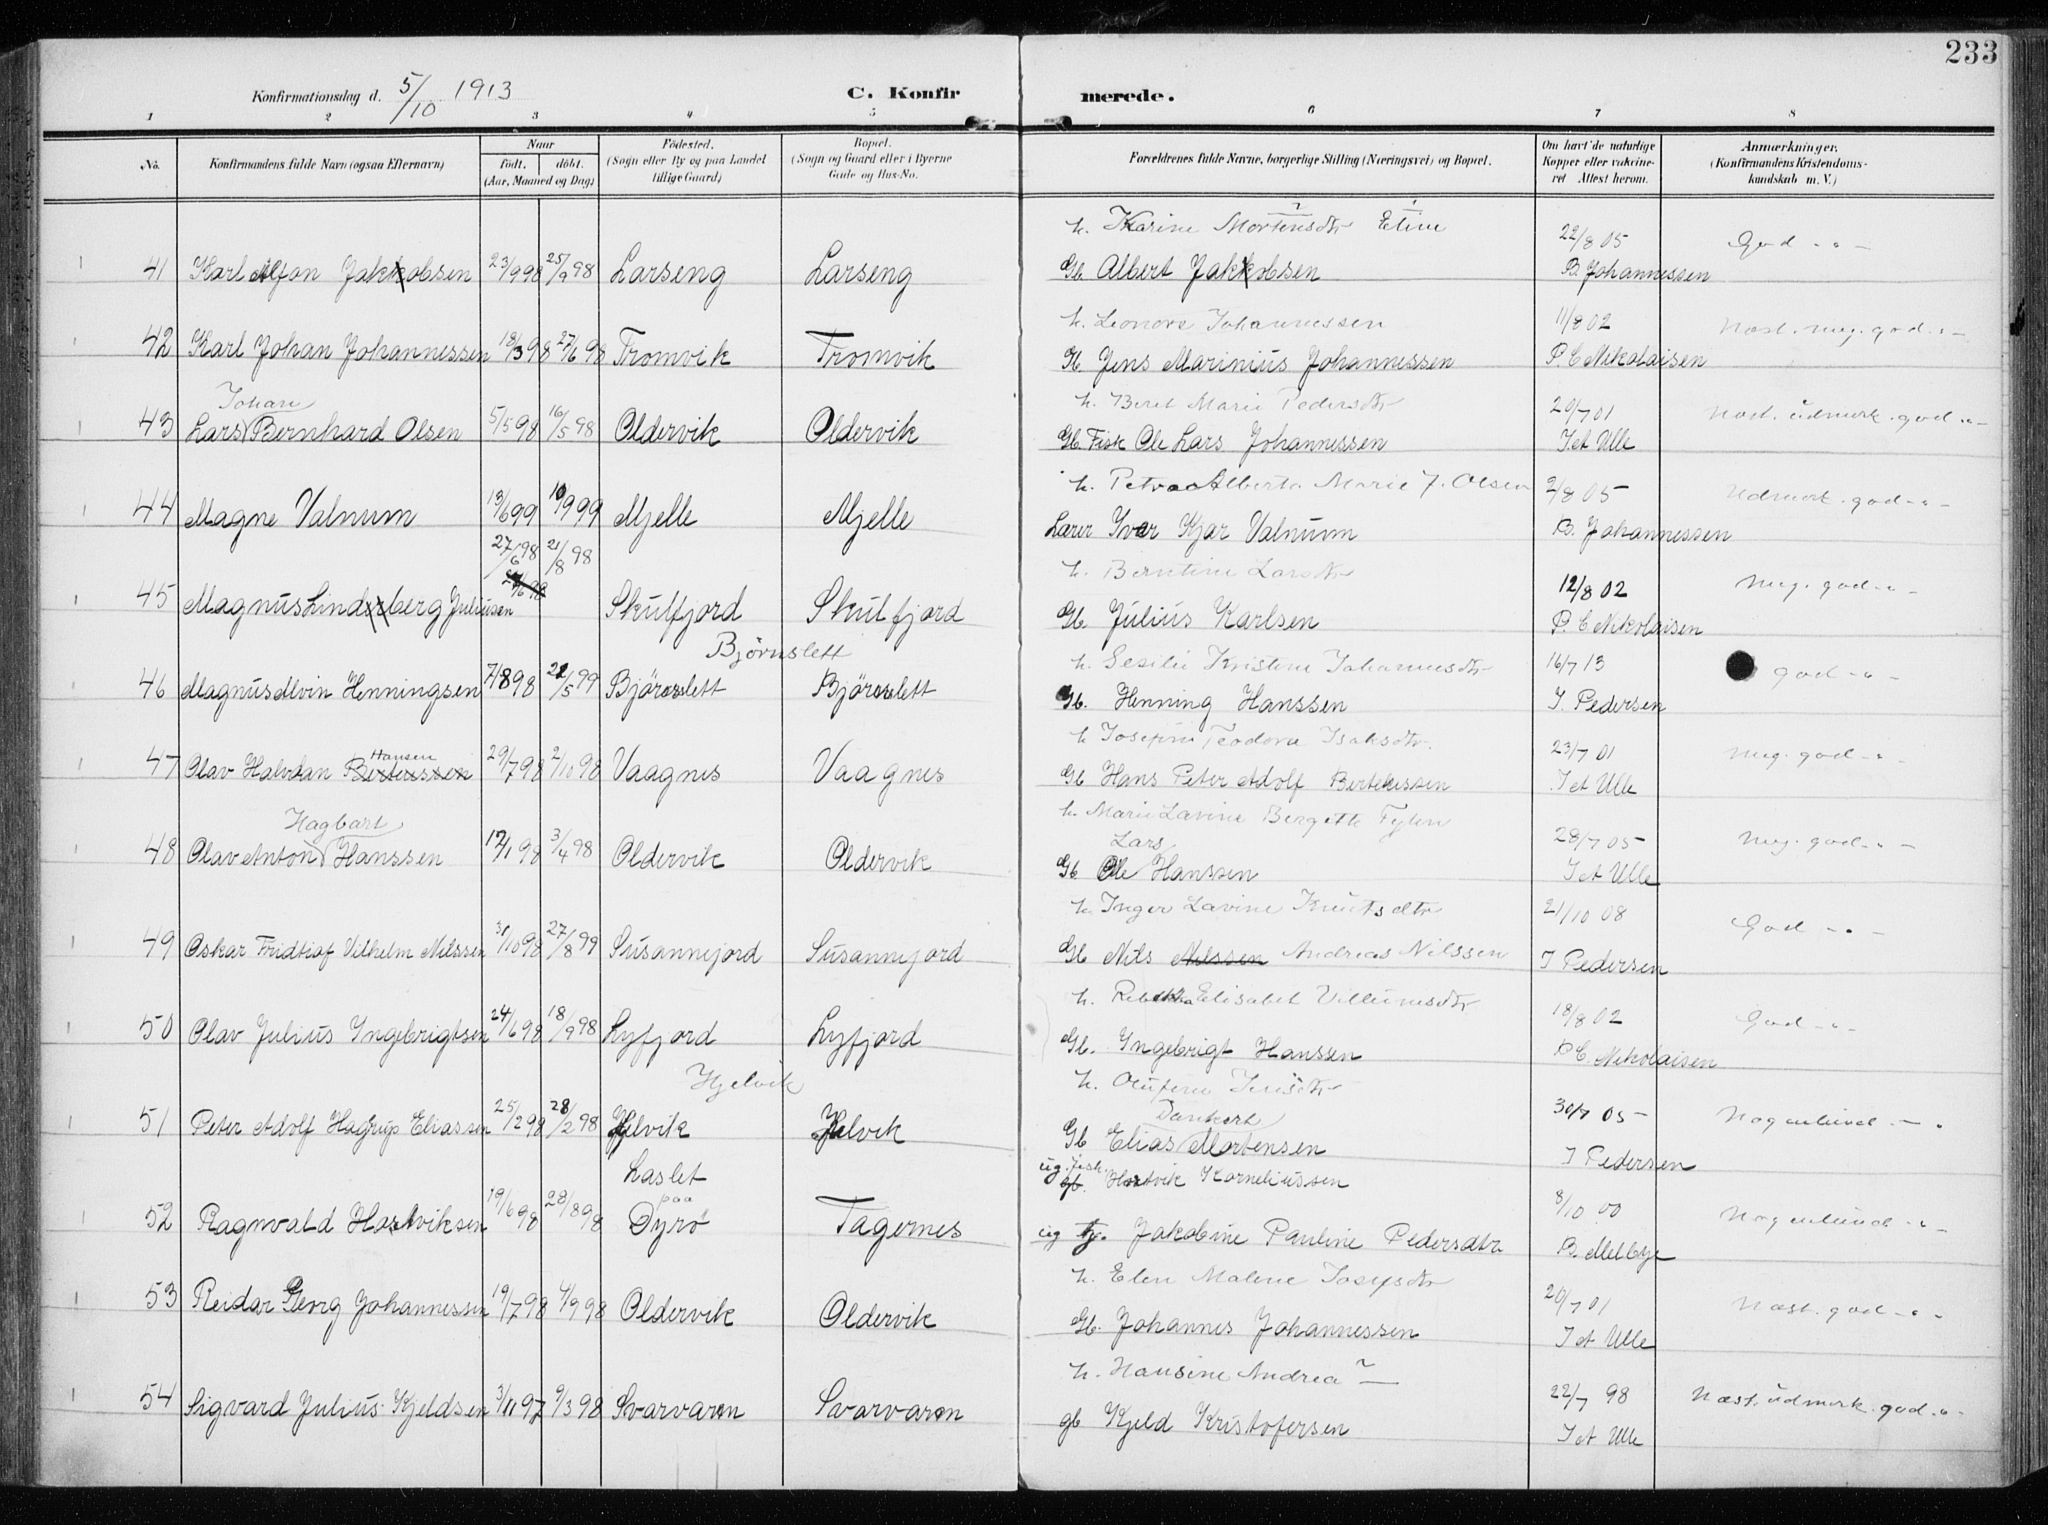 233
Konfirmationsdag d. 5/10 1913 C. Konfirmerede.
1 2 3 4 5 6 7 8
No. Konfirmandens fulde Navn (ogsaa Efternavn) Naar født. døbt. (Aar, Maaned og Dag) Fødested. (Sogn eller By og paa Landet tillige Gaard) Bopæl. (Sogn og Gaard eller i Byerne Gade og Hus-No. Forældrenes fulde Navne, borgerlige Stilling (Næringsvei) og Bopæl. Om havt de naturlige Kopper eller vakcineret Attest herom. Anmærkninger. (Konfirmandens Kristendomskundskab m. V.)
h. Karine Mortensdtr Eline 22/8 05 God -"-
41 Karl Alfon Jakobsen 23/9 98 25/9 98 Larseng Larseng Gb. Albert Jakobsen B. Johannessen
h. Leonore Johannessen 11/8 02 Næst. meg. god -"-
42 Karl Johan Johannessen 18/3 98 27/6 98 Tromvik Tromvik Gb Jens Marinius Johannessen P. C Nikolaisen
Johan h. Beret Marie Pedersdtr 20/7 01 Næst. udmerk. god -"-
43 Lars Bernhard Olsen 5/5 98 16/5 98 Oldervik Oldervik Gb. Fisk Ole Lars Johannessen J. A Ulle
h. Petra Alberta Marie J. Olsen 2/8 05 Udmerk. god -"-
44 Magne Valnum 13/6 99 10/9 99 Mjelle Mjelle Lærer Iver Kjar Valnum B. Johannessen
27/6 98 21/8 98 h. Berntine Larsdtr 12/8 02 Meg. god -"-
45 Magnus Lindberg Juliusen Skulfjord Skulfjord Gb. Julius Karlsen P. C Nikolaisen
Bjørnslett h. Sesilie Kristine Johannesdtr 16/7 13 god -"-
46 Magnus Alvin Henningsen 7/8 98 22/5 99 Bjørnslett Bjørnslett Gb. Henning Hanssen J. Pedersen
Hansen h Josefine Teodora Isaksdtr. 23/7 01 Meg. god -"-
47 Olav Halvdan Berteussen 29/7 98 2/10 98 Vaagnes Vaagnes Gb Hans Peter Adolf Berteussen J A Ulle
Hagbart h. Marie Lavine Bergitte Fylin 28/7 05 Meg. god -"-
Lars
48 Olav Anton Hanssen 12/1 98 3/4 98 Oldervik Oldervik Gb Ole Hanssen J A Ulle
h. Inger Lavine Knutsdtr 21/10 08 God -"-
49 Oskar Fridtjof Vilhelm Nilssen 31/10 98 27/8 99 Susannejord Susannejord Gb Nils Nilssen Andreas Nilssen J Pedersen
h. Rebekka Elisabet Villumsdtr 18/8 02 God -"-
50 Olav Julius Ingebrigtsen 24/6 98 18/9 98 Lyfjord Lyfjord Gb. Ingebrigt Hanssen P C. Nikolaisen
Hjelvik h. Olufine Jensdtr
Dankert 30/7 05 Nogenlund -"-
51 Peter Adolf Hagrup Eliassen 25/2 98 28/2 98 Hjelvik Hjelvik Gb Elias Mortensen J Pedersen
Laslet ug. fisk. gb. Hartvik Korneliussen 8/10 00 Nogenlund -"-
paa
52 Ragnvald Hartviksen 19/6 98 28/8 98 Dyrø Tagernes ug tj. Jakobine Pauline Pedersdtr B. Melbye
h. Elen Malene Josefsdtr 20/7 01 Næst. god -"-
53 Reidar Georg Johannessen 19/7 98 4/9 98 Oldervik Oldervik Gb. Johannes Johannessen J A Ulle
h. Hansine Andrea ? 22/7 98 Næst. udmerk. god -"-
54 Sigvard Julius Kjeldsen 3/11 97 9/3 98 Svarvaren Svarvaren gb Kjeld Kristofersen J A Ulle